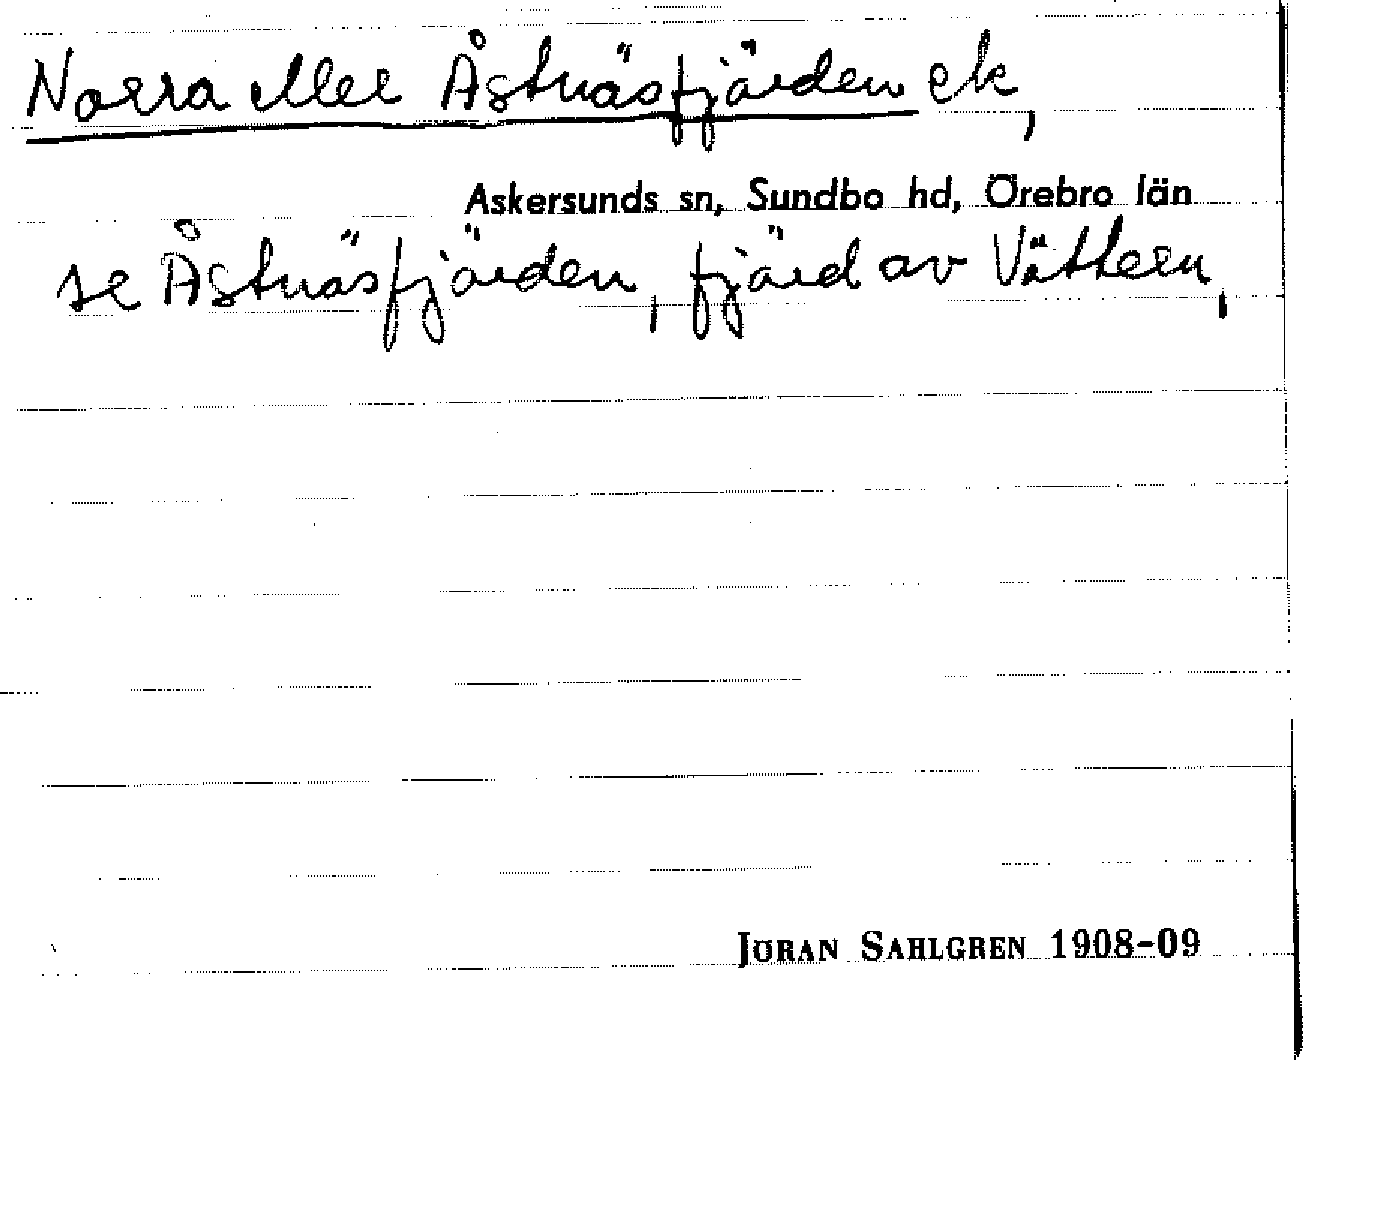 Norra eller Åstnäsfjärden ek,
Askersunds sn, Sundbo hd, Örebro län
se Åstnäsfjärden, fjärd av Vättern,
JÖRAN SAHLGREN 1908-09